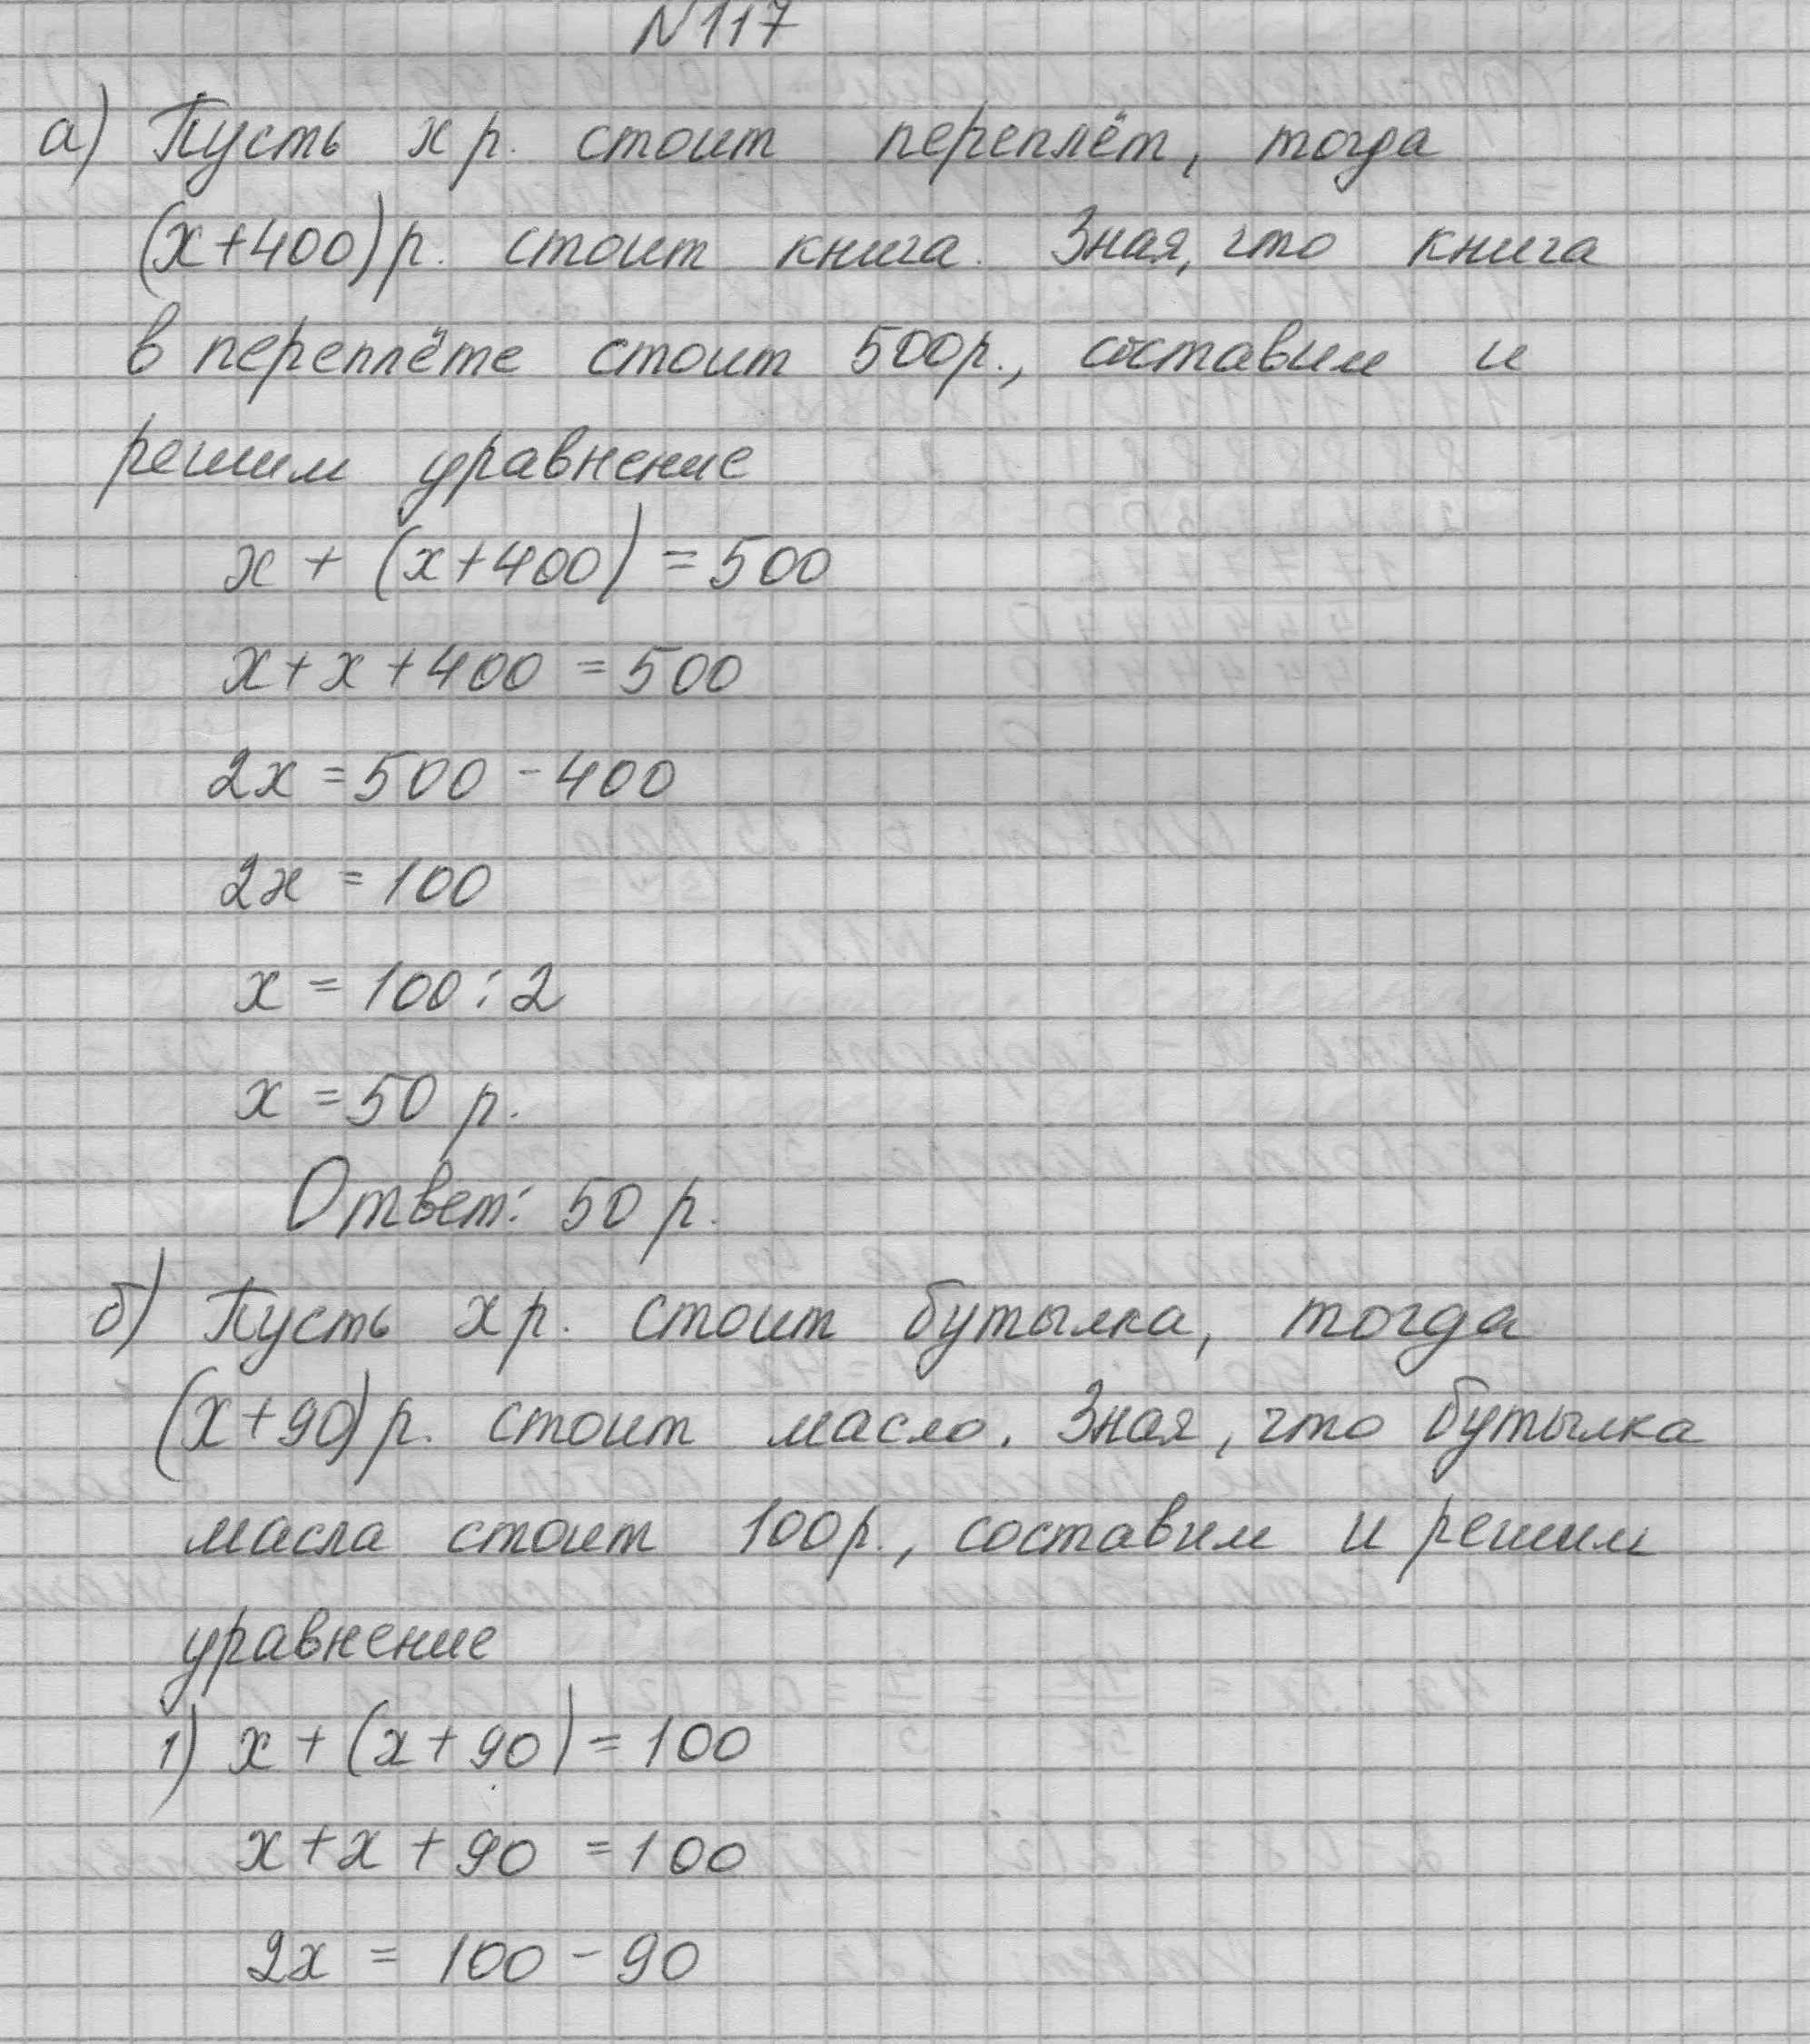 N117
а) Пусть х р. стоит переплёт, тогда
(х+400) р. стоит книга. Зная, что книга
в переплёте стоит 500р., составим и
решим уравнение
х + (х+400) = 500
х+х+400 = 500
2х = 500 - 400
2х = 100
х = 100 : 2
х = 50 р.
Ответ: 50 р.
б) Пусть х р. стоит бутылка, тогда
(х+90) р. стоит масло. Зная, что бутылка
масла стоит 100р., составим и решим
уравнение
1) х + (х+90) = 100
х+х+90 = 100
2х = 100 - 90